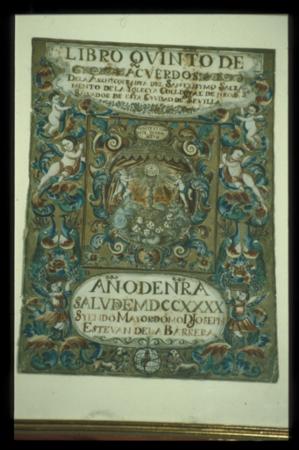 LIBRO QVINTO DE
ACVERDOS
DE LA ARCHICOFRADIA DEL SANTISSYMO SACRA
MENTO DE LA YGLECYA COLLEGYAL DE NRO S
SALVADOR DE ESTA CYVDAD DE SEVILLA
AÑO DE NRA
SALVD E MDCCXXXX
SYENDO MAYORDOMO D JOSEPH
ESTEVAN DE LA BARRERA